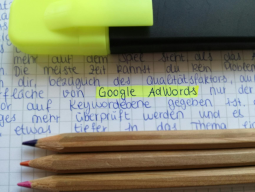 mehr auf dem Spiel steht als das
Die meiste Zeit kannst du dein
dir, bezüglich des Qualitätsfaktors, auf
fläche von Google AdWords nur der
or auf Keywordebene gegeben ist.
ges mehr überprüft werden und es
etwas tiefer in das Thema ei